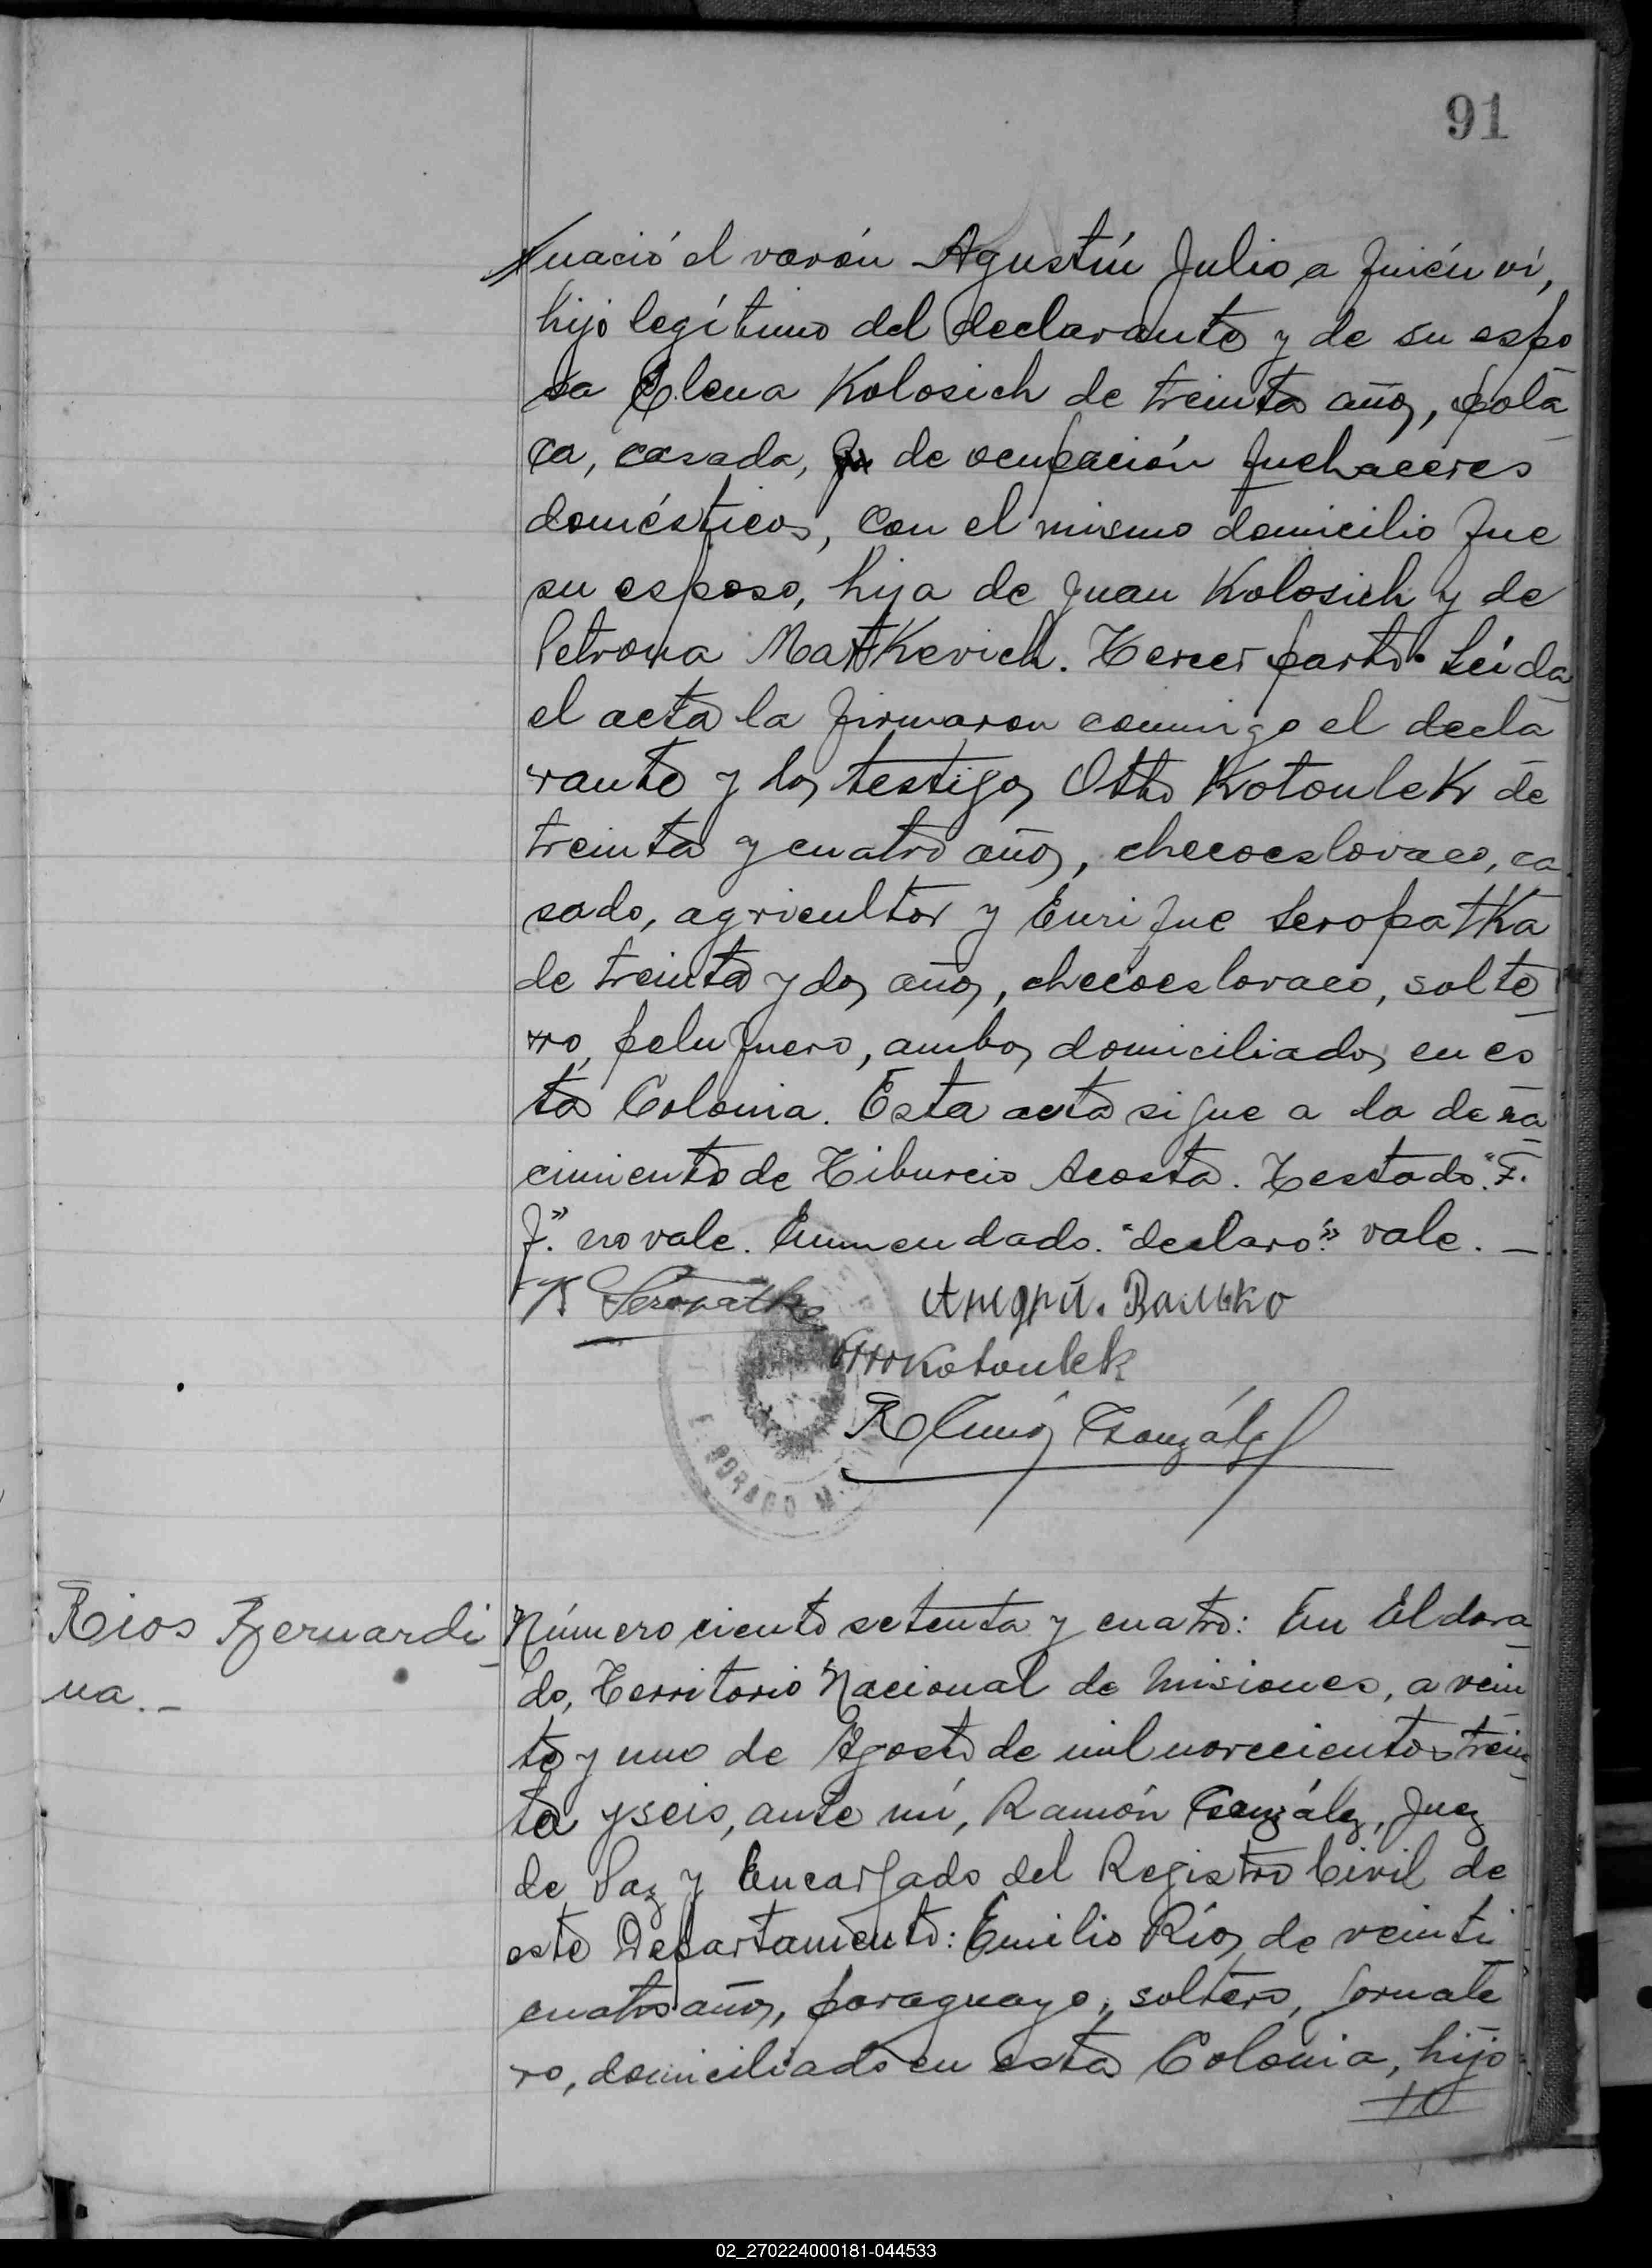 91
nació el varón Agustín Julio a quién vi,
hijo legítimo del declarante y de su espo
sa Elena Kolosich de treinta años, pola
ca, casada, de ocupación quehaceres
domésticos, con el mismo domicilio que
su esposo, hija de Juan Kolosich y de
Petrona Matkevich. Tercer parto. Leída
el acta la firmaron conmigo el decla
rante y los testigos Otto Kotoulek de
treinta y cuatro años, checoeslovaco, ca
sado, agricultor y Enrique Seropatka
de treinta y dos años, checoeslovaco, solte
ro, peluquero, ambos domiciliados en es
ta Colonia. Esta acta sigue a la de na
cimiento de Tiburcio Acosta. Testado "F.
f." no vale. Enmendado. "declaro" vale. —
Seropatka Андрій. Валько
Otto Kotoulek
Ramón González
ELDORADO M
Rios Bernardi
na. -
Número ciento setenta y cuatro: En Eldora
do, Territorio Nacional de Misiones, a vein
te y uno de Agosto de mil novecientos trein
ta y seis, ante mí, Ramón González, Juez
de Paz y Encargado del Registro Civil de
este Departamento: Emilio Ríos de veinti
cuatro años, paraguayo, soltero, jornale
ro, domiciliado en esta Colonia, hijo
02_270224000181-044533